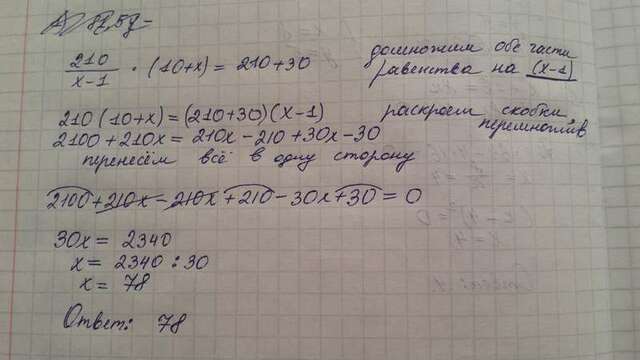 210/(x-1) · (10+x) = 210+30
домножим обе части
равенства на (x-1)
210(10+x)=(210+30)(x-1)
раскроем скобки,
перемножив
2100+210x = 210x-210+30x-30
перенесём всё в одну сторону
2100+210x-210x+210-30x+30=0
30x= 2340
x= 2340:30
x= 78
Ответ: 78